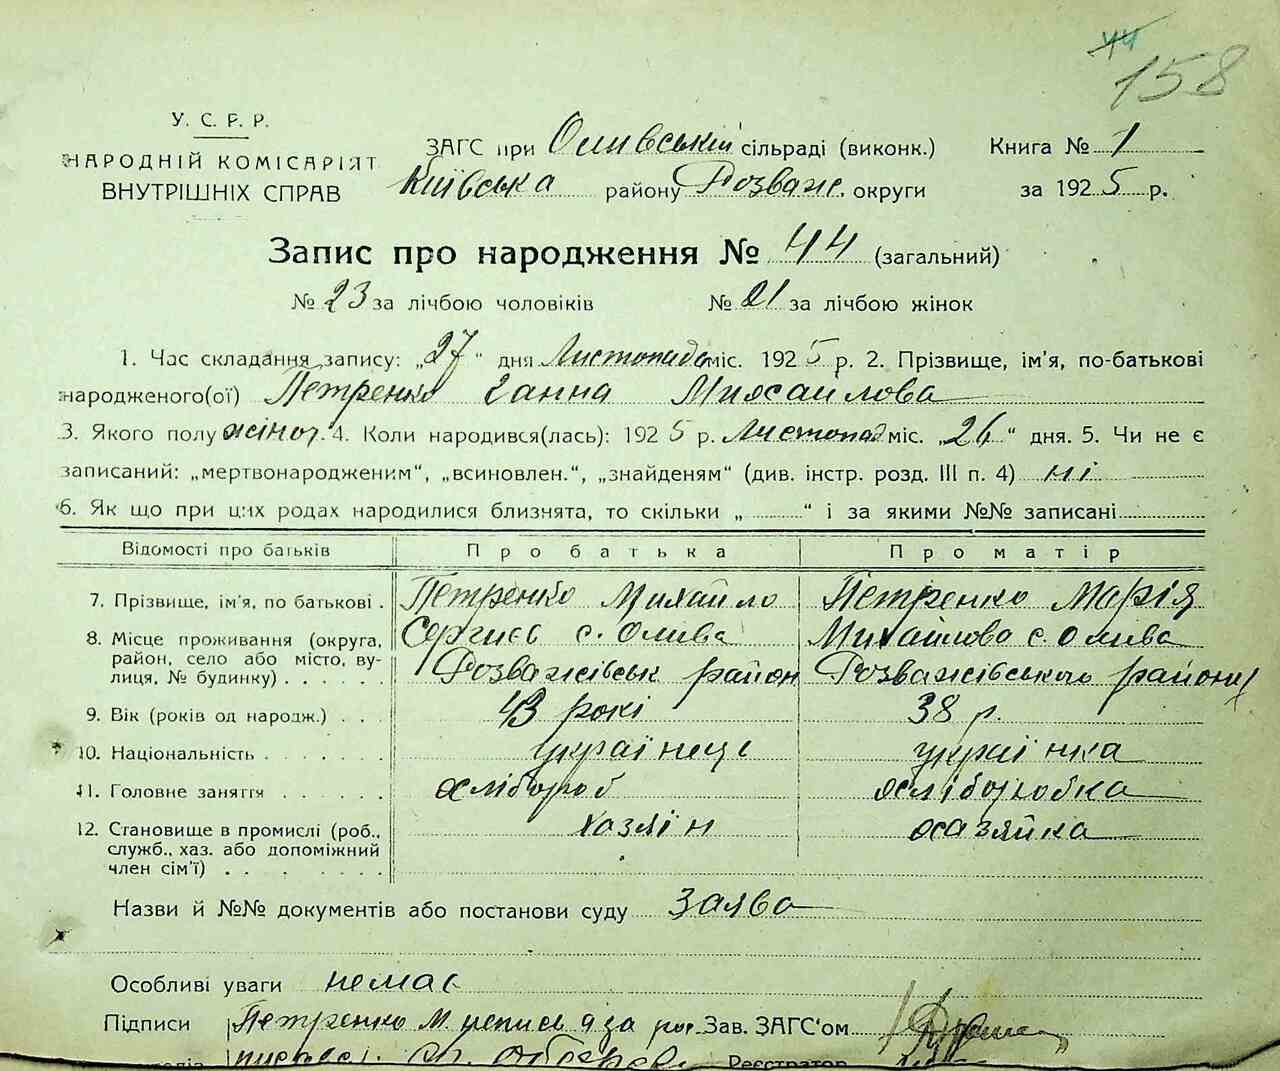 44
158
У. С. Р. Р.
НАРОДНІЙ КОМІСАРІЯТ
ВНУТРІШНІХ СПРАВ
ЗАГС при Оливській сільраді (виконк.)
Київська району Розваж. округи
Книга № 1
за 1925 р.
Запис про народження № 44 (загальний)
№ 23 за лічбою чоловіків № 21 за лічбою жінок
1. Час складання запису: „27" дня Листопада міс. 1925 р. 2. Прізвище, ім'я, по-батькові
народженого(ої) Петренко Ганна Михайлова
3. Якого полу жіноч. 4. Коли народився(лась): 1925 р. Листопад міс. „26" дня. 5. Чи не є
записаний: „мертвонародженим", „всиновлен.", „знайденям" (див. інстр. розд. III п. 4) ні
6. Як що при цих родах народилися близнята, то скільки „ " і за якими №№ записані
Відомості про батьків Про батька Про матір
7. Прізвище, ім'я, по батькові . Петренко Михайло Петренко Марія
8. Місце проживання (округа, Сергієв с. Олива Михайлова с. Олива
район, село або місто, ву- Розважівськ район Розважівського району
лиця, № будинку)
9. Вік (років од народж.) 43 рокі 38 р.
10. Національність українець українка
11. Головне заняття хлібороб хліборобка
12. Становище в промислі (роб., хазяін хазяйка
служб., хаз. або допоміжний
член сім'ї)
Назви й №№ документів або постанови суду заява
Особливі уваги немає
Підписи Петренко М. за Зав. ЗАГС'ом
Реєстратор